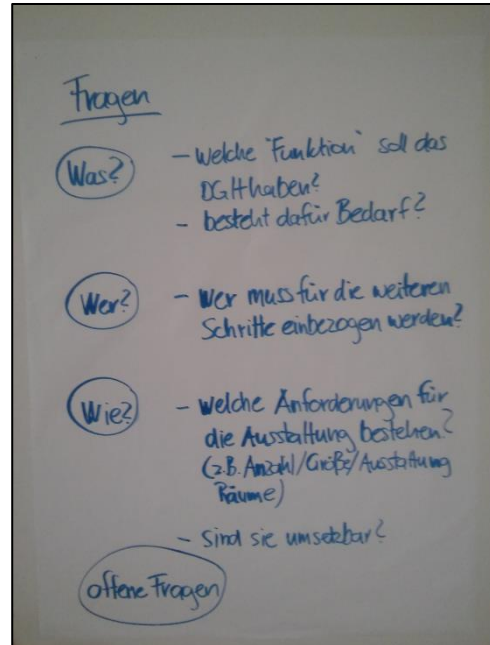 Fragen
Was?
- Welche "Funktion" soll das
DGH haben?
- besteht dafür Bedarf?
Wer?
- Wer muss für die weiteren
Schritte einbezogen werden?
Wie?
- Welche Anforderungen für
die Ausstattung bestehen?
(z.B. Anzahl/Größe/Ausstattung
Räume)
- Sind sie umsetzbar?
offene Fragen